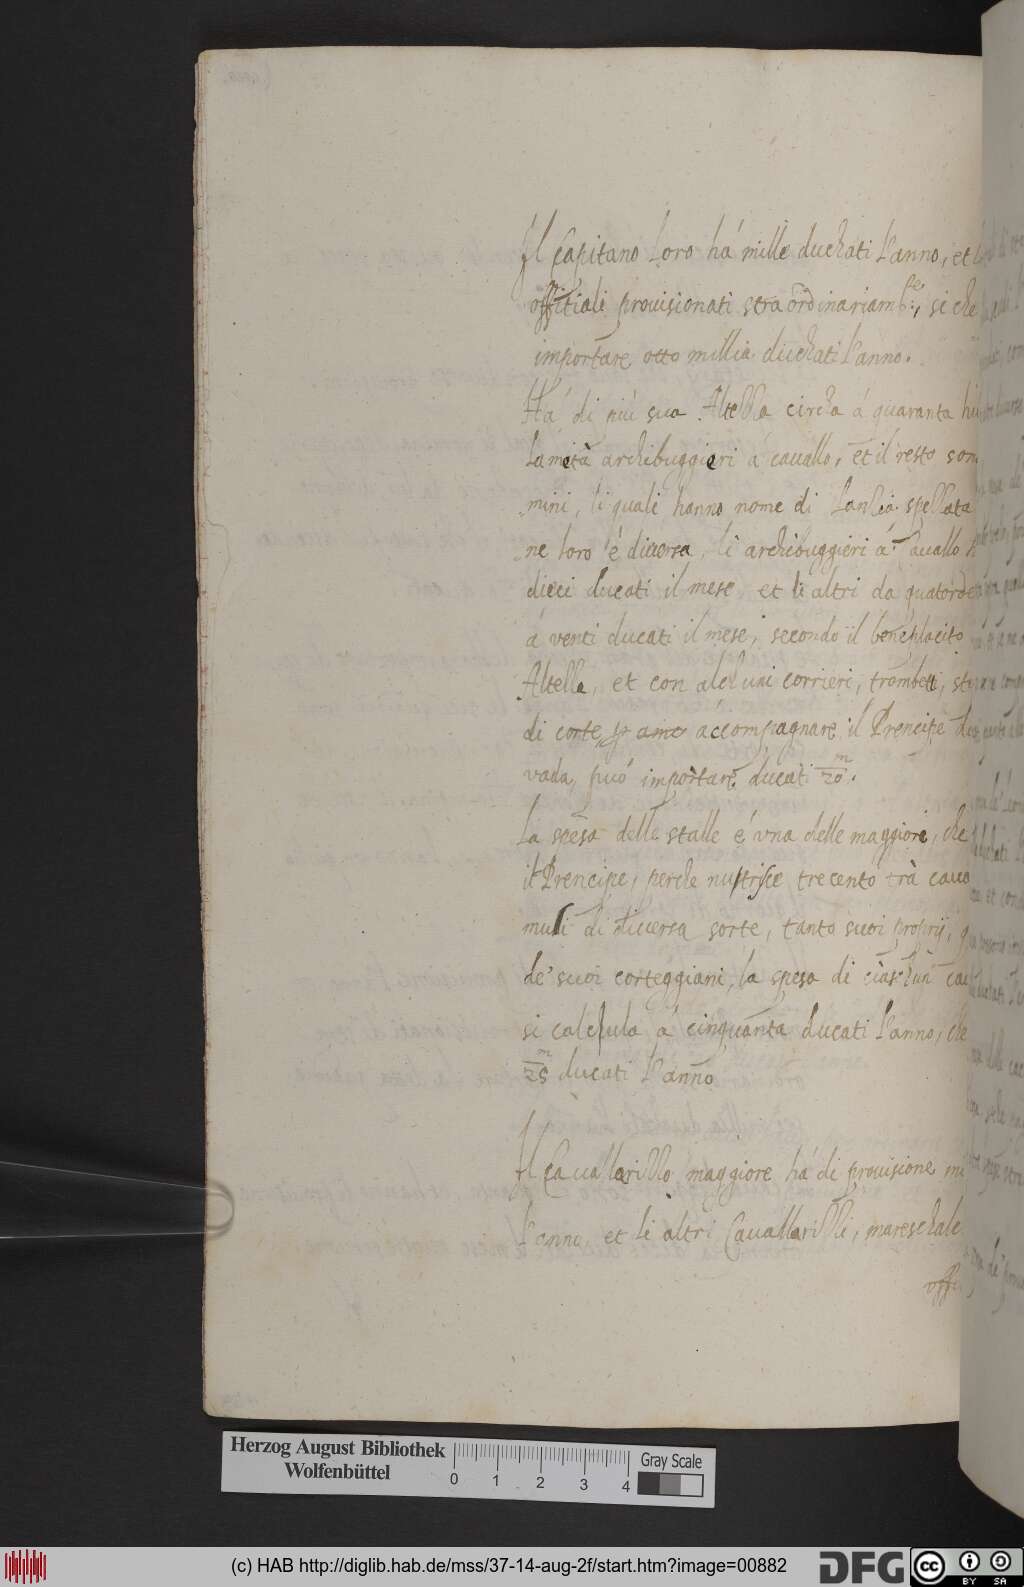 Il Capitano loro há mille duchati l'anno, et l
offitiali prouisionati straordinariam:te, si che
importare otto millia duchati l'anno.
Há di piú sua Altezza circha á quaranta hu
la metà archibuggieri á cauallo, et il resto son
mini, li quali hanno nome di Lancia spezzata
ne loro é diuersa, li archibuggieri á Cauallo h
dieci ducati il mese et li altri da quatorde
á venti ducati il mese, secondo il beneplacito
Altezza, et con alchuni corrieri, trombeti, sta
di corte accompagnare il Prencipe doue
vada, può importare ducati 20 m.
La spesa delle stalle é vna delle maggiori, che
il Prencipe, perche nutrisce trecento trà caua
muli di diuersa sorte, tanto suoi proprij, q
de' suoi corteggiani, la spesa di ciaschun cau
si calchula á cinquanta ducati l'anno, che
25 m ducati l'anno
Il Cauallarizzo maggiore há di prouisione mi
l'anno, et li altri Cauallarizzi, mareschale
offi
Herzog August Bibliothek
Wolfenbüttel
0 1 2 3 4
Gray Scale
(c) HAB http://diglib.hab.de/mss/37-14-aug-2f/start.htm?image=00882
DFG
cc BY SA